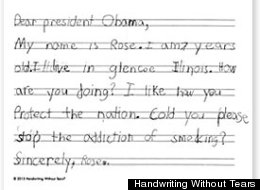 Dear president Obama,
My name is Rose. I am 7 years
old. I live in glencoe Ilinois. How
are you doing? I like how you
Protect the nation. Cold you please
stop the addiction of smoking?
Sincerely, Rose.
© 2013 Handwriting Without Tears®
Handwriting Without Tears